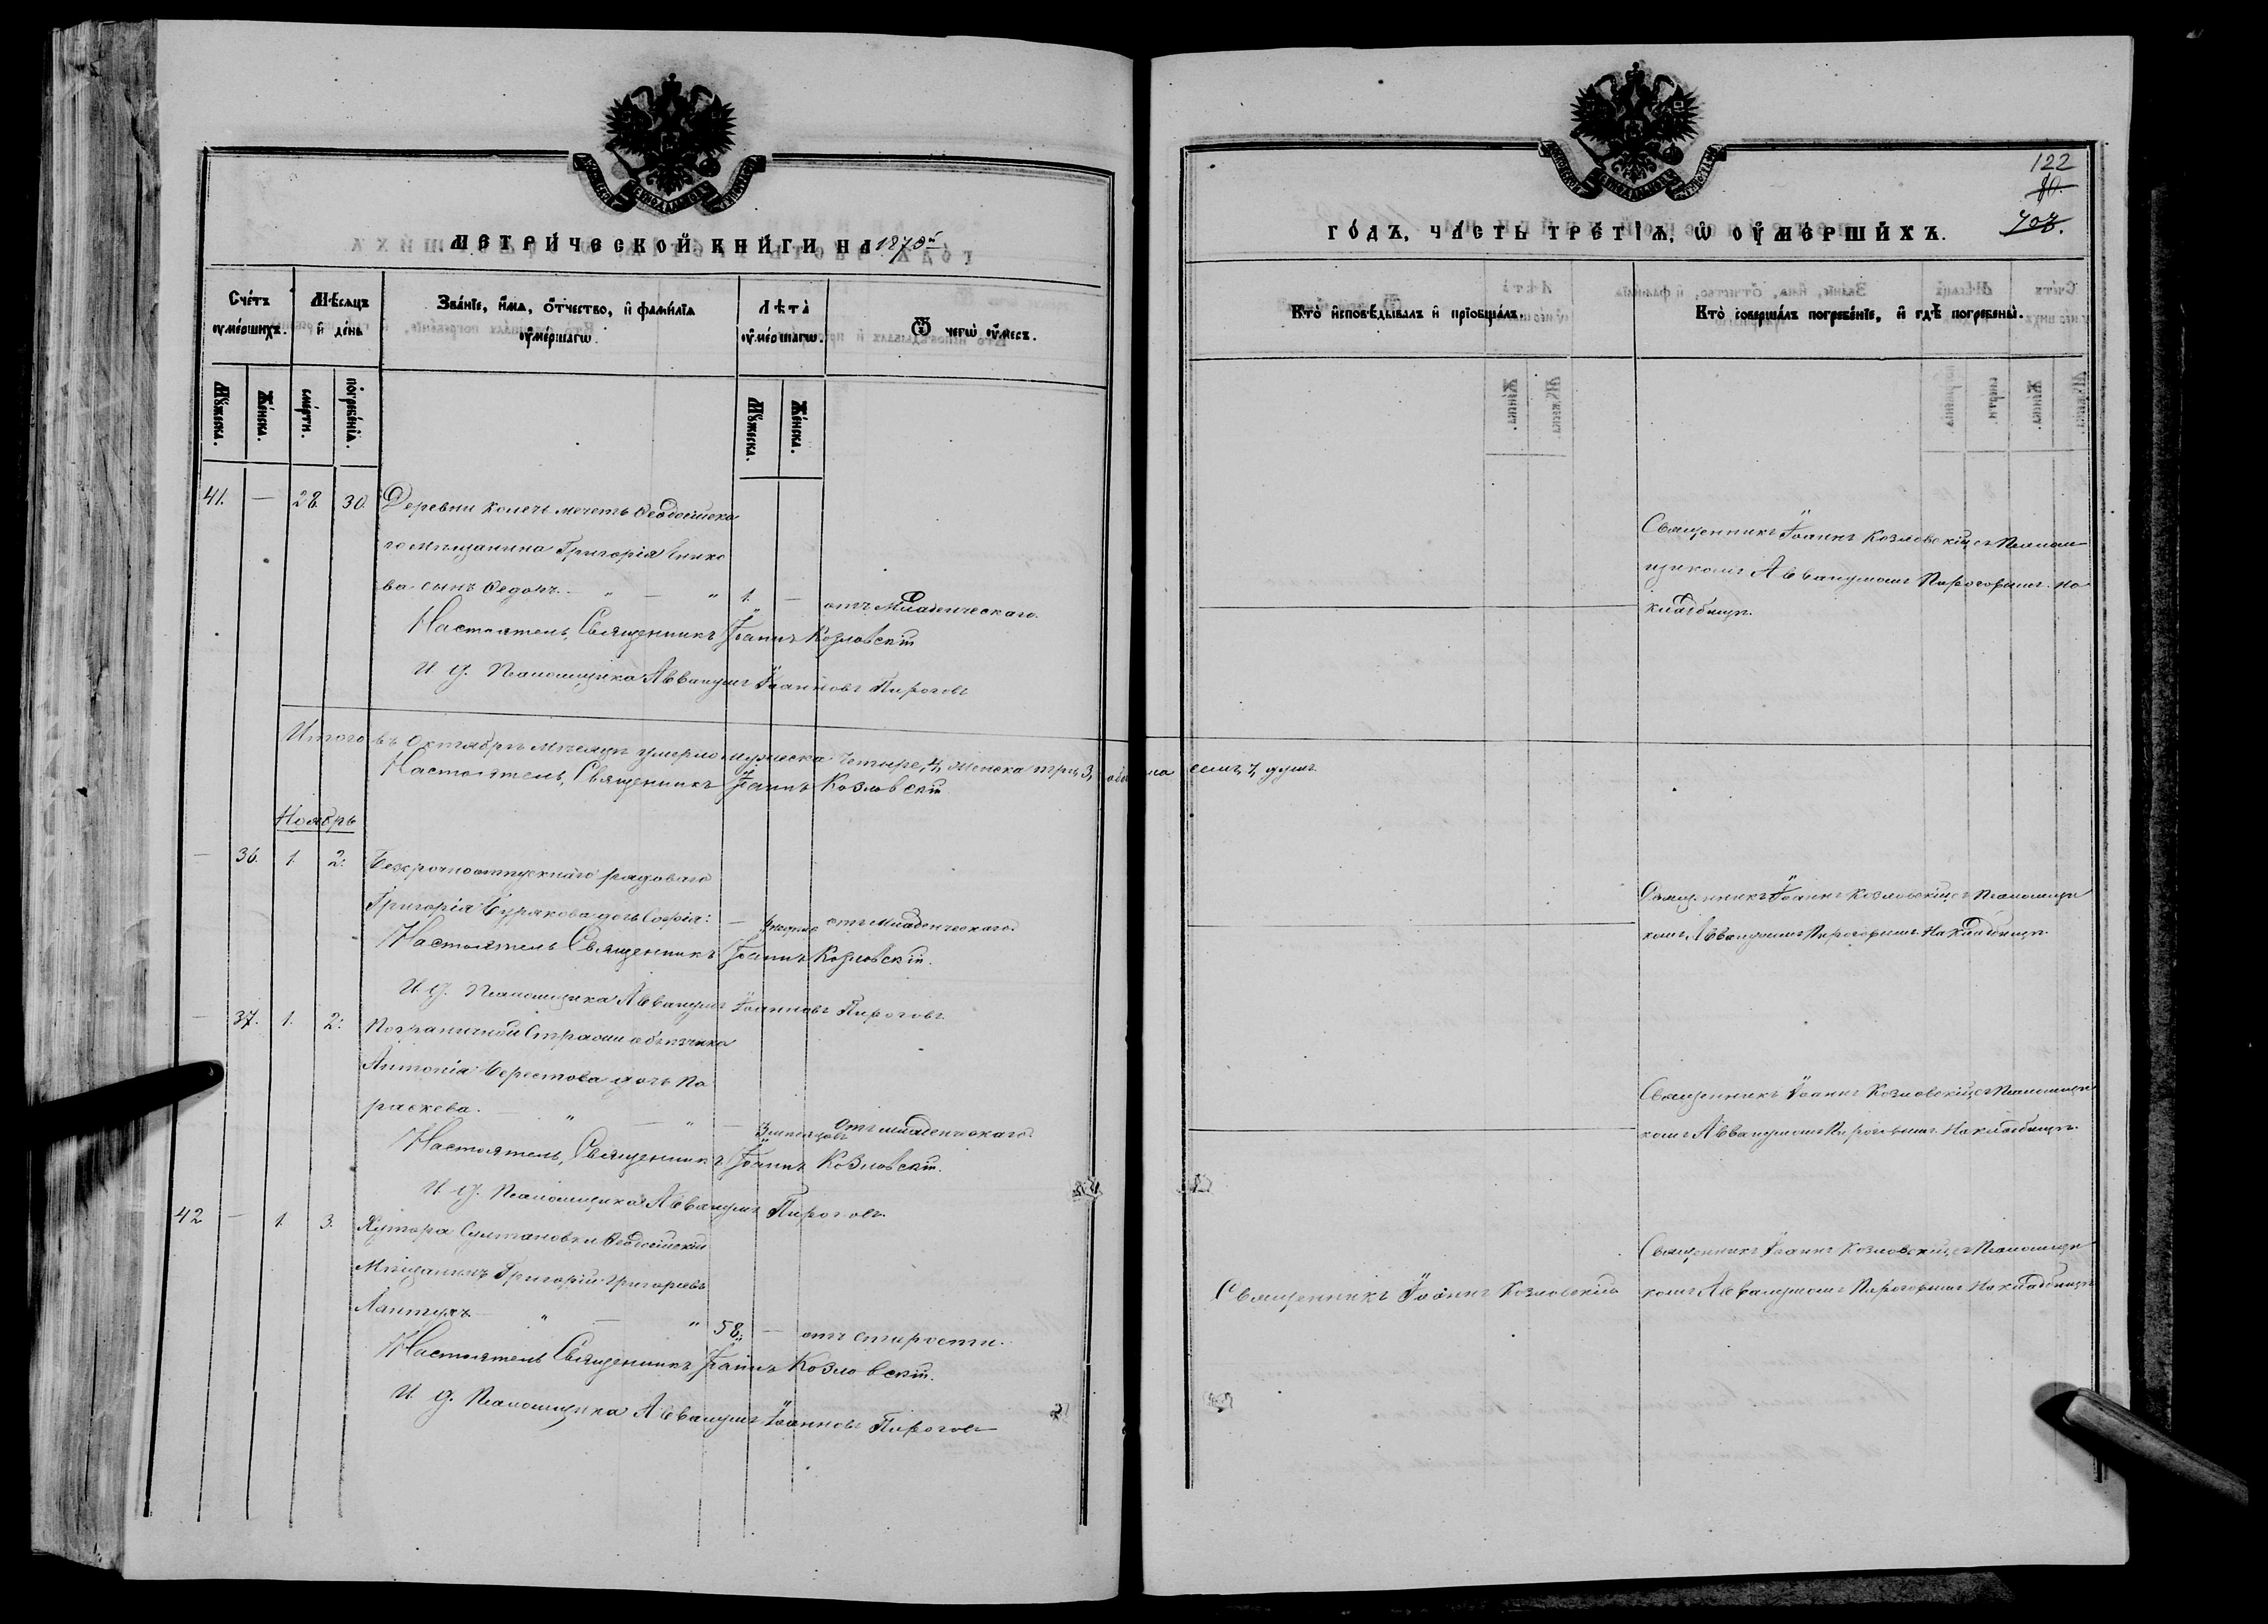 МЕТРИЧЕСКОЙ КНИГИ НА 1873й
Счетъ умершихъ.
Мѣсяцъ и день
Званіе, имя, отчество, и фамилія умершагѡ.
Лѣта умершагѡ.
Ѿ чегѡ умеръ.
Мужеска.
Женска.
смерти.
погребенія.
Мужеска.
Женска.
41. — 28. 30. Деревни Колечь мечеть Ѳеодосійска
го мѣщанина Григорія
ва сынъ Ѳедоръ. — " — " 1. — отъ Младенческаго.
Настоятель, Священникъ Іоаннъ Козловскій
И. д. Псаломщика Аввакумъ Іоанновъ Пироговъ
Итого въ Октябрѣ мѣсяцѣ умерло мужеска четыре, 4, женска три, 3, обоего пола семь, 7, душъ.
Настоятель, Священникъ Іоаннъ Козловскій
Ноябрь
— 36. 1. 2. Безсрочноотпускнаго рядоваго
Григорія Бурякова дочь Софія: — отъ младенческаго.
Настоятель Священникъ Іоаннъ Козловскій.
И. д. Псаломщика Аввакумъ Іоанновъ Пироговъ
— 37. 1. 2. Пограничной Стражи объѣзчика
Антонія Берестова дочь Па
раскева. — " — " — 3 мѣсяцовъ отъ младенческаго.
Настоятель, Священникъ Іоаннъ Козловскій.
И. д. Псаломщика Аввакумъ Пироговъ.
42 — 1. 3. Хутора Султановки Ѳеодосійскій
Мѣщанинъ Григорій Григорьевъ
Лантухъ — " — " 58. — отъ старости.
Настоятель Священникъ Іоаннъ Козловскій.
И. д. Псаломщика Аввакумъ Іоанновъ Пироговъ
122
80.
708.
ГОДЪ, ЧАСТЬ ТРЕТІЯ, Ѡ УМЕРШИХЪ.
Кто исповѣдывалъ и пріобщалъ.
Кто совершалъ погребеніе, и гдѣ погребены.
Священникъ Іоаннъ Козловскій съ Псалом
щикомъ Аввакумомъ Пироговымъ. На
кладбищѣ.
Священникъ Іоаннъ Козловскій съ Псаломщи
комъ Аввакумомъ Пироговымъ На кладбищѣ.
Священникъ Іоаннъ Козловскій съ Псаломщи
комъ Аввакумомъ Пироговымъ На кладбищѣ.
Священникъ Іоаннъ Козловскій съ Псаломщи
Священникъ Іоаннъ Козловскій
комъ Аввакумомъ Пироговымъ На кладбищѣ